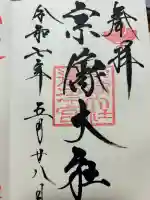 奉拝
宗像大社
令和六年 五月廿八日